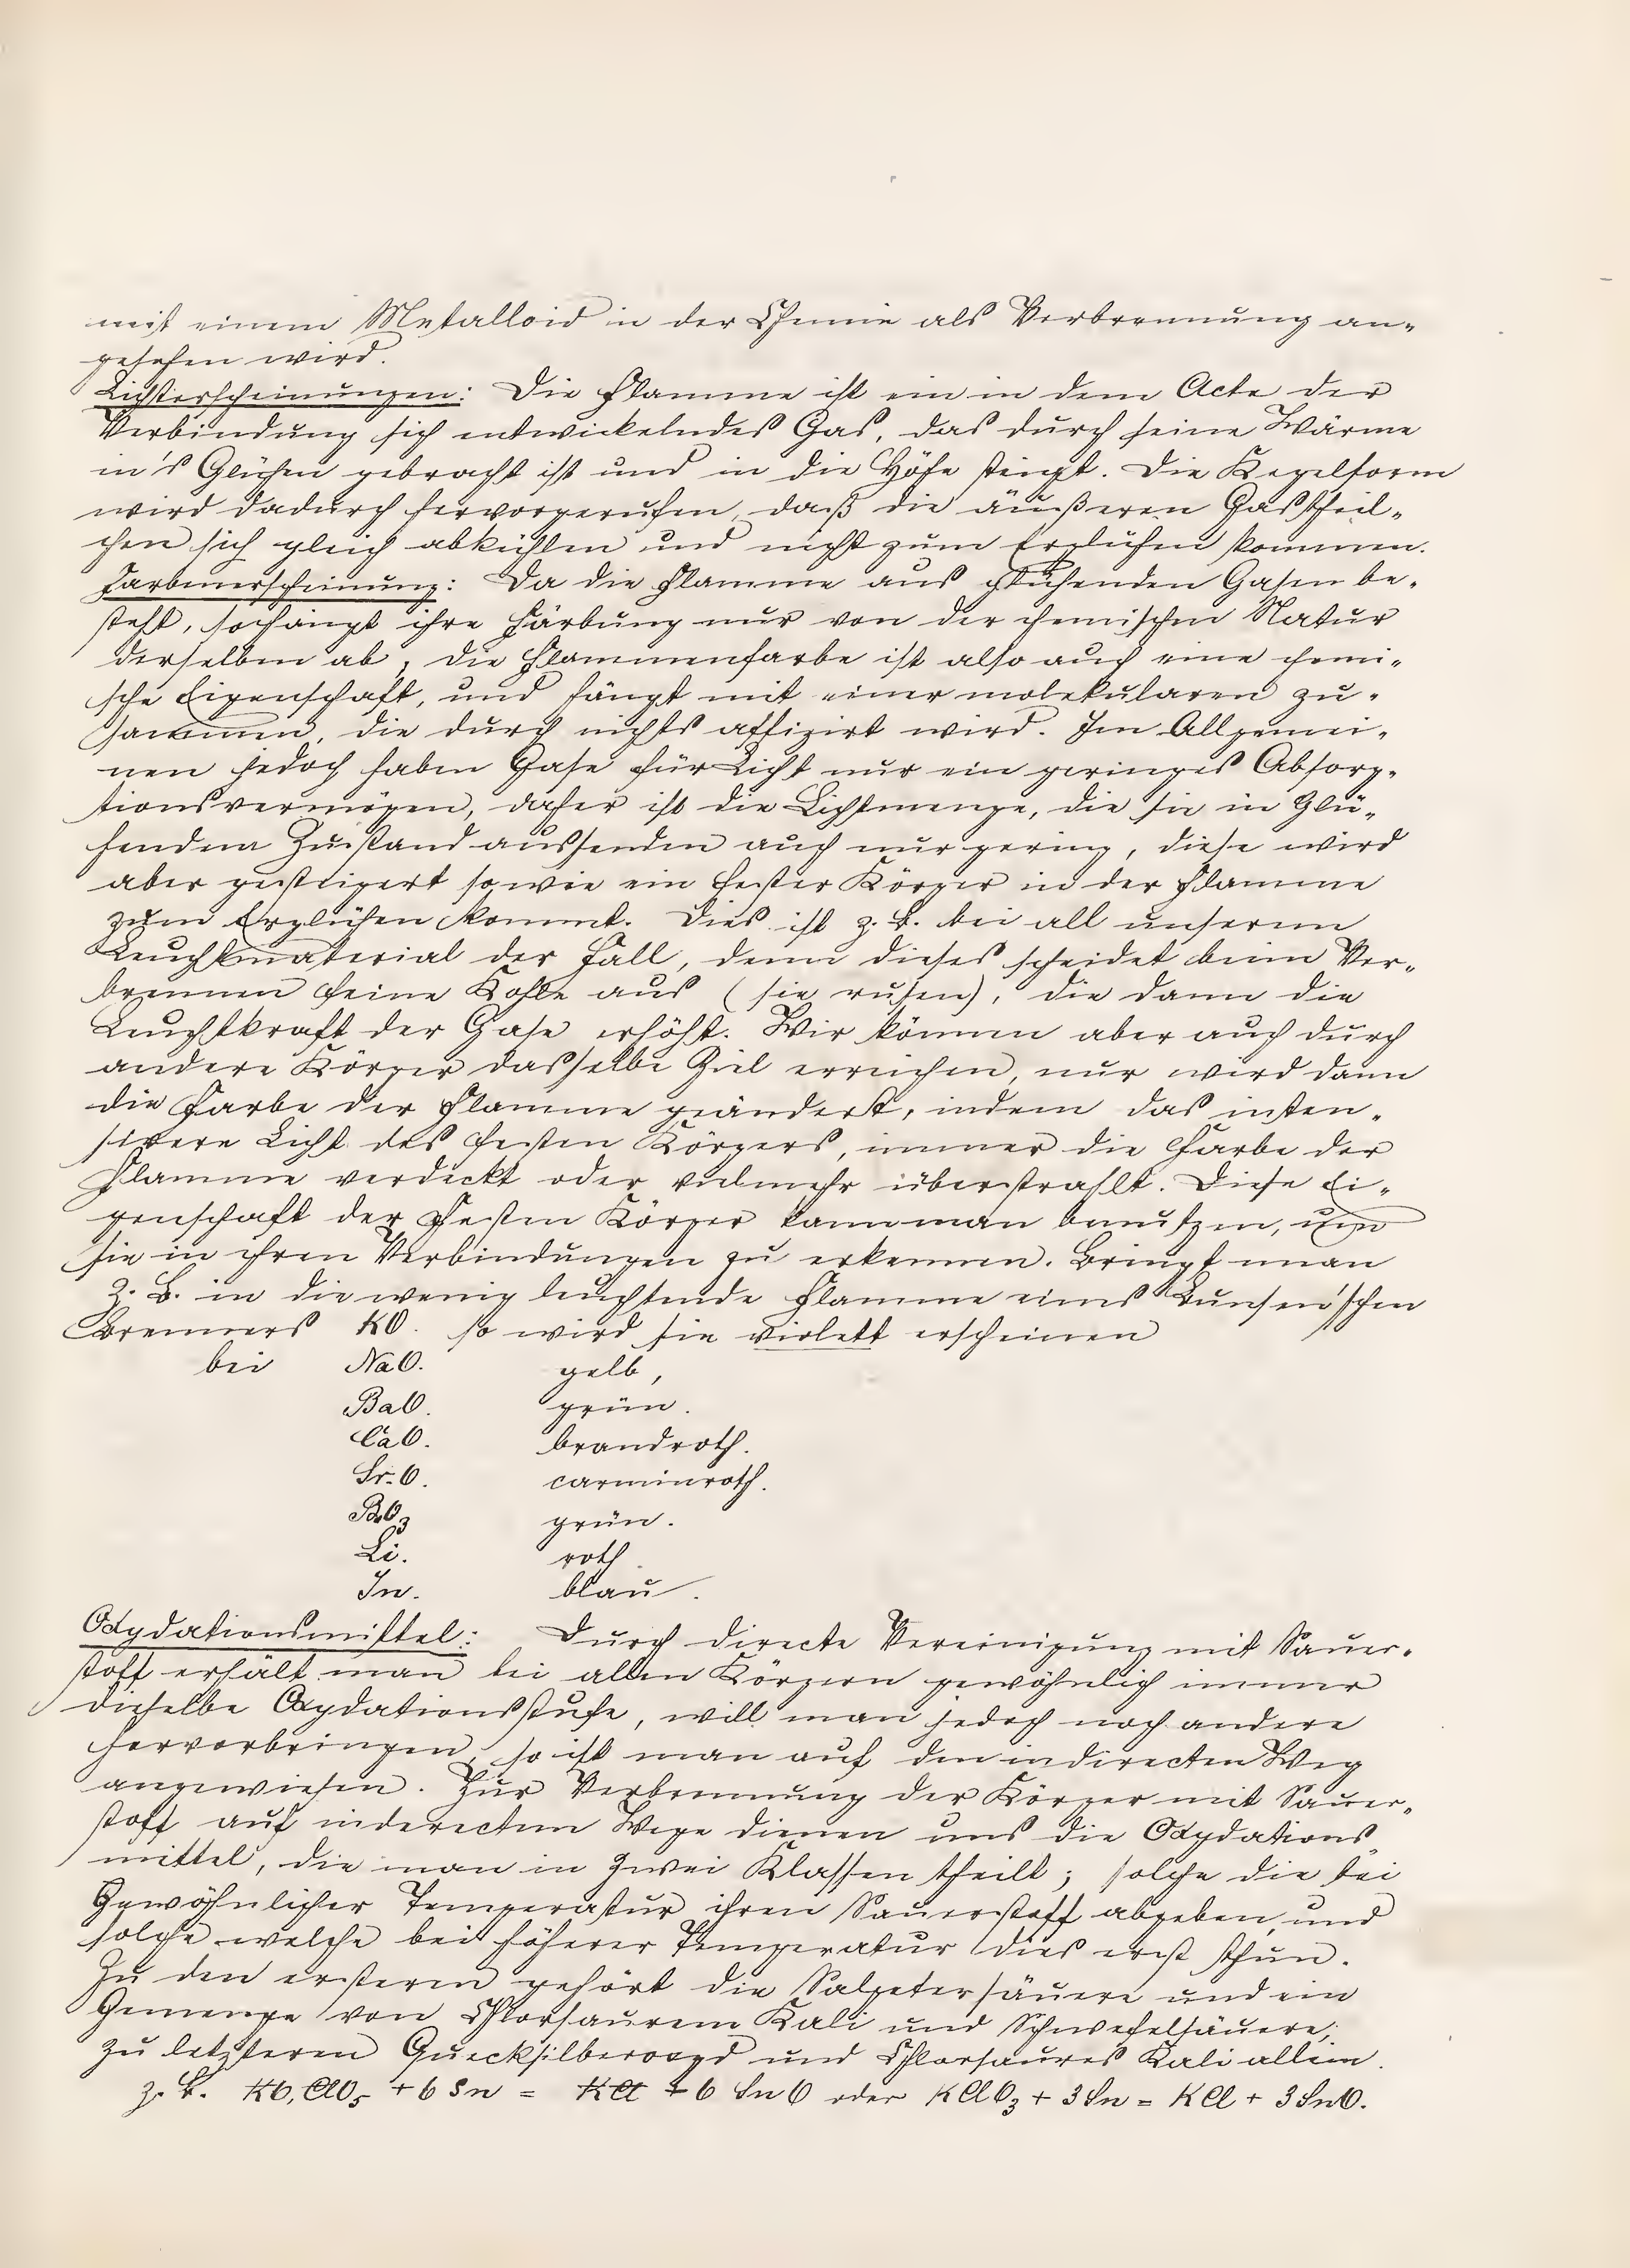 mit einem Metalloid in der Chemie als Verbrennung an-
gesehen wird.
Lichterscheinungen: Die Flamme ist ein in dem Acte der
Verbindung sich entwickelndes Gas, das durch seine Wärme
in's Glühen gebracht ist und in die Höhe steigt. Die Kegelform
wird dadurch hervorgerufen, daß die äußeren Gastheil-
chen sich gleich abkühlen und nicht zum Erglühen kommen.
Farbenerscheinung: Da die Flamme aus glühenden Gasen be-
steht, so hängt ihre Färbung nur von der chemischen Natur
derselben ab, die Flammenfarbe ist also auch eine chemi-
sche Eigenschaft, und hängt mit einer molekularen zu-
sammen, die durch nichts affizirt wird. Im Allgemei-
nen jedoch haben Gase für Licht nur ein geringes Absorp-
tionsvermögen, daher ist die Lichtmenge, die sie in Glü-
hendem Zustand aussenden auch nur gering, diese wird
aber gesteigert sowie ein fester Körper in der Flamme
zum Erglühen kommt. Dies ist z. B. bei all unserem
Leuchtmaterial der Fall, denn dieses scheidet beim Ver-
brennen feine Kohle aus (sie rußen), die dann die
Leuchtkraft der Gase erhöht. Wir können aber auch durch
andere Körper dasselbe Ziel erreichen, nur wird dann
die Farbe der Flamme geändert, indem das inten-
sivere Licht des festen Körpers, immer die Farbe der
Flamme verdeckt oder vielmehr überstrahlt. Diese Ei-
genschaft der festen Körper kann man benutzen, um
sie in ihren Verbindungen zu erkennen. Bringt man
z. B. in die wenig leuchtende Flamme eines Bunsen'schen
Brenners KO. so wird sie violett erscheinen
bei NaO. gelb,
BaO. grün.
CaO. brandroth.
Sr.O. carminroth.
BO3 grün.
Li. roth.
In. blau.
Oxydationsmittel: Durch directe Vereinigung mit Sauer-
stoff erhält man bei allen Körpern gewöhnlich immer
dieselbe Oxydationsstufe, will man jedoch noch andere
hervorbringen, so ist man auf den indirecten Weg
angewiesen. Zur Verbrennung der Körper mit Sauer-
stoff auf inderectem Wege dienen uns die Oxydations-
mittel, die man in zwei Klassen theilt; solche die bei
Gewöhnlicher Temperatur ihren Sauerstoff abgeben, und
solche welche bei höherer Temperatur dies erst thun.
Zu den ersteren gehört die Salpetersäuere und ein
Gemenge von Chlorsaurem Kali und Schwefelsäuere;
zu letzteren Quecksilberoxyd und Chlorsaures Kali allein.
z. B. KO,ClO5 + 6 Sn = KCl + 6 SnO oder KClO3 + 3 Sn = KCl + 3 SnO.